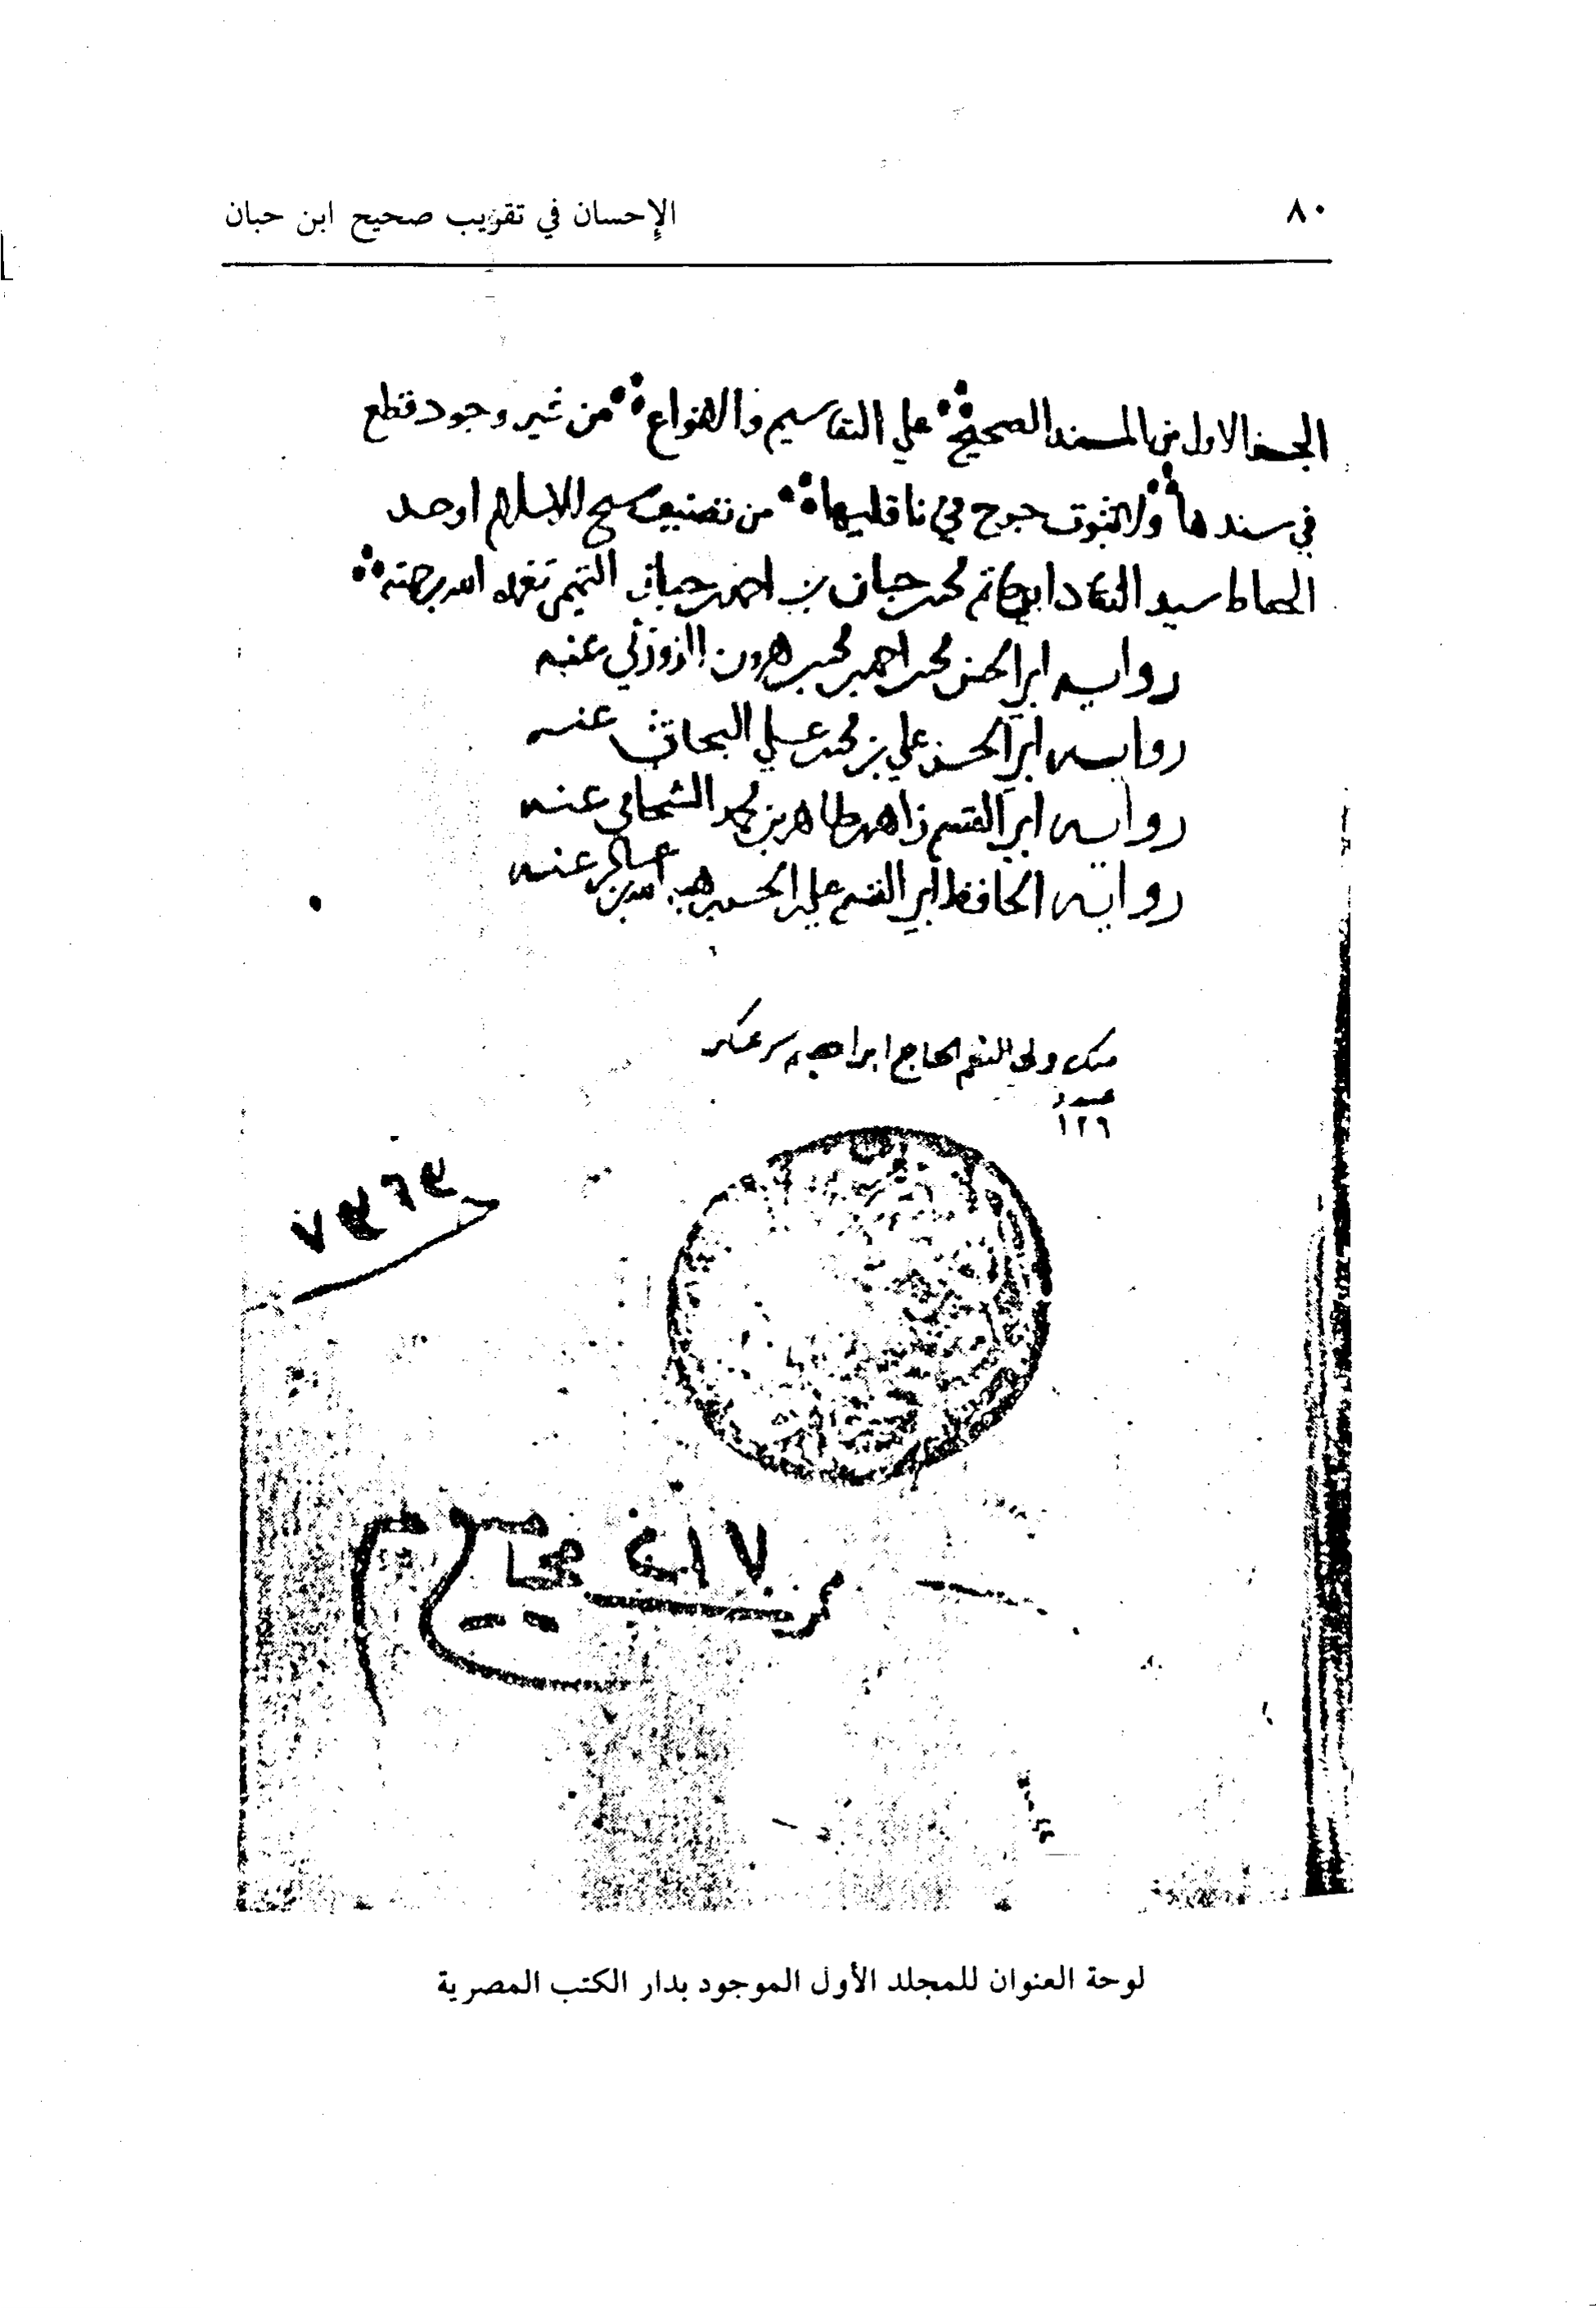 ٨٠
الإحسان في تقريب صحيح ابن حبان
الجزء الاول من المسند الصحيح على التقاسيم والانواع من غير وجود قطع
في سندها ولا ثبوت جرح في ناقليها من تصنيف شيخ الاسلام اوحد
الحفاظ سيد النقاد ابي حاتم محمد بن حبان بن احمد بن حبان التميمي تغمده الله برحمته
رواية ابي الحسن محمد بن احمد بن محمد بن هرون الزوزني عنه
رواية ابي الحسن علي بن محمد بن علي البحاثي عنه
رواية ابي القسم زاهر بن طاهر بن محمد الشحامي عنه
رواية الحافظ ابي القسم علي بن الحسن بن هبة الله بن عساكر عنه
ولي النعم الحاج ابراهيم سرعسكر
١٢٦
٢١٧
لوحة العنوان للمجلد الأول الموجود بدار الكتب المصرية